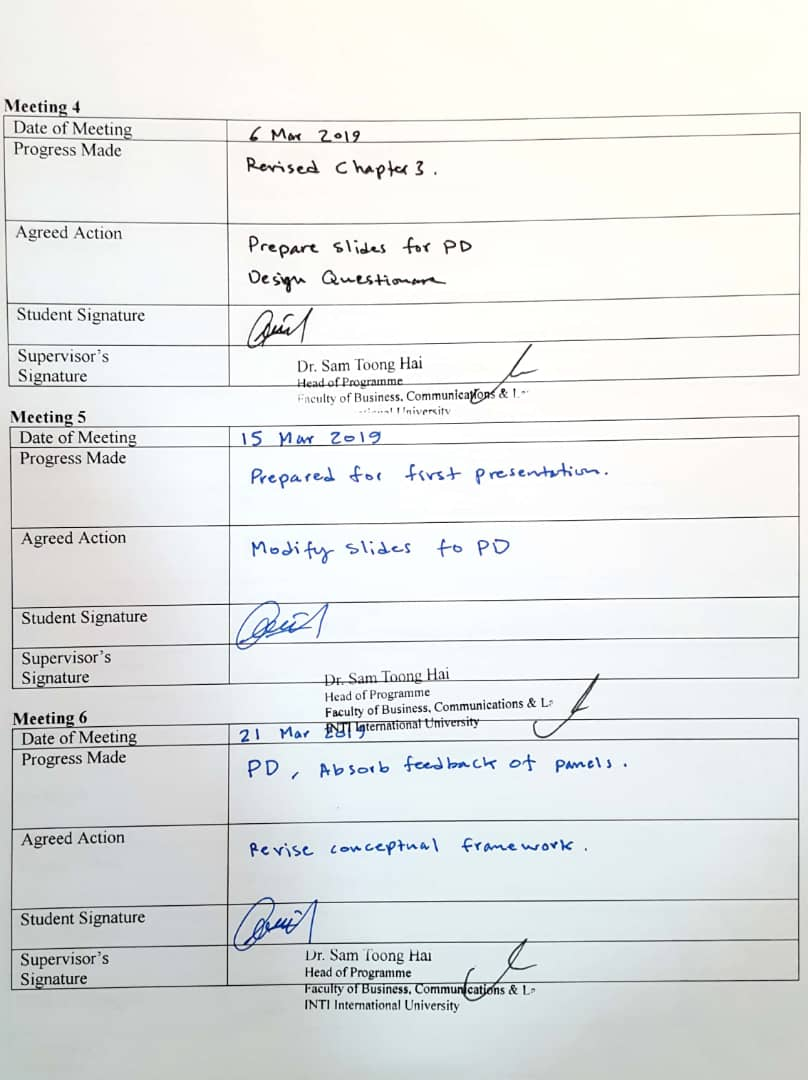 Meeting 4
Date of Meeting 6 Mar 2019
Progress Made Revised Chapter 3.
Agreed Action Prepare slides for PD
Design Questionare
Student Signature
Supervisor's Dr. Sam Toong Hai
Signature Head of Programme
Faculty of Business, Communications &
University
Meeting 5
Date of Meeting 15 Mar 2019
Progress Made Prepared for first presentation.
Agreed Action Modify slides to PD
Student Signature
Supervisor's
Signature Dr. Sam Toong Hai
Head of Programme
Faculty of Business, Communications &
INTI International University
Meeting 6
Date of Meeting 21 Mar 2019
Progress Made PD, Absorb feedback of panels.
Agreed Action Revise conceptual framework.
Student Signature
Supervisor's Dr. Sam Toong Hai
Signature Head of Programme
Faculty of Business, Communications &
INTI International University